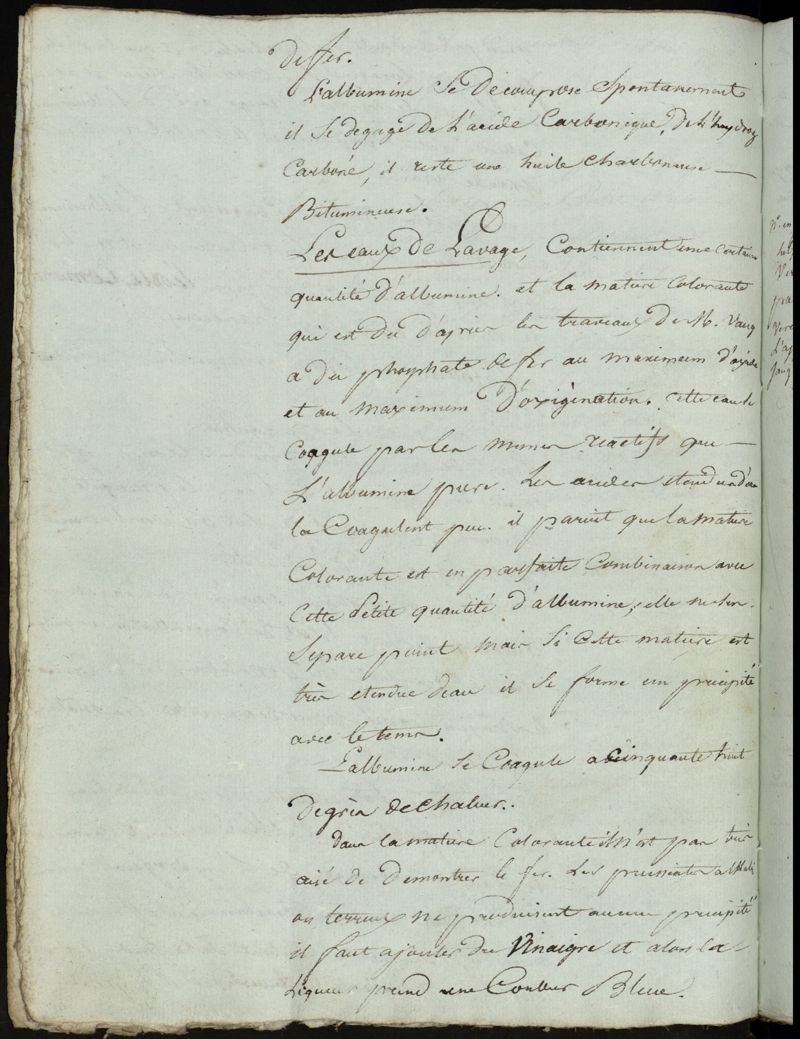 de fer.
L'albumine se Décompose Spontanement
il se degage de L'acide Carbonique, de L'hydrog
Carboné, il reste une huile charboneuse
Bitumineuse.
Les eaux de Lavage, Contiennent une certaine
quantité d'albumine. et la matiere Colorante
qui est du d'aprèes les traveaux de M. Vauq
a du phosphate de fer au maximum d'acide
et au maximum D'oxigènation. cette eau se
Coagule par les memes reactifs que
L'albumine pure. Les acides etendus d'eau
la Coagulent peu. il paroit que la matiere
Colorante est en parfaite Combinaison avec
Cette Petite quantité d'albumine, elle ne s'en
Separe point mais Si Cette matiere est
très etendue d'eau il se forme un precipité
avec le tems.
L'albumine se Coagule a Cinquante huit
Degrès de chaleur.
Dans la matiere Colorante il n'est pas très
aisé de Demontrer le fer. Les prussiates alkali
ou terreux ne produisent aucun precipité
il faut ajouter du Vinaigre et alors la
Liqueur prend une Couleur Bleue.